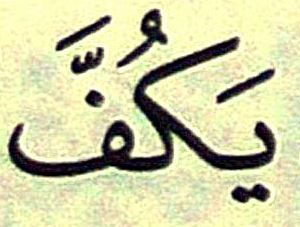 يَكُفَّ